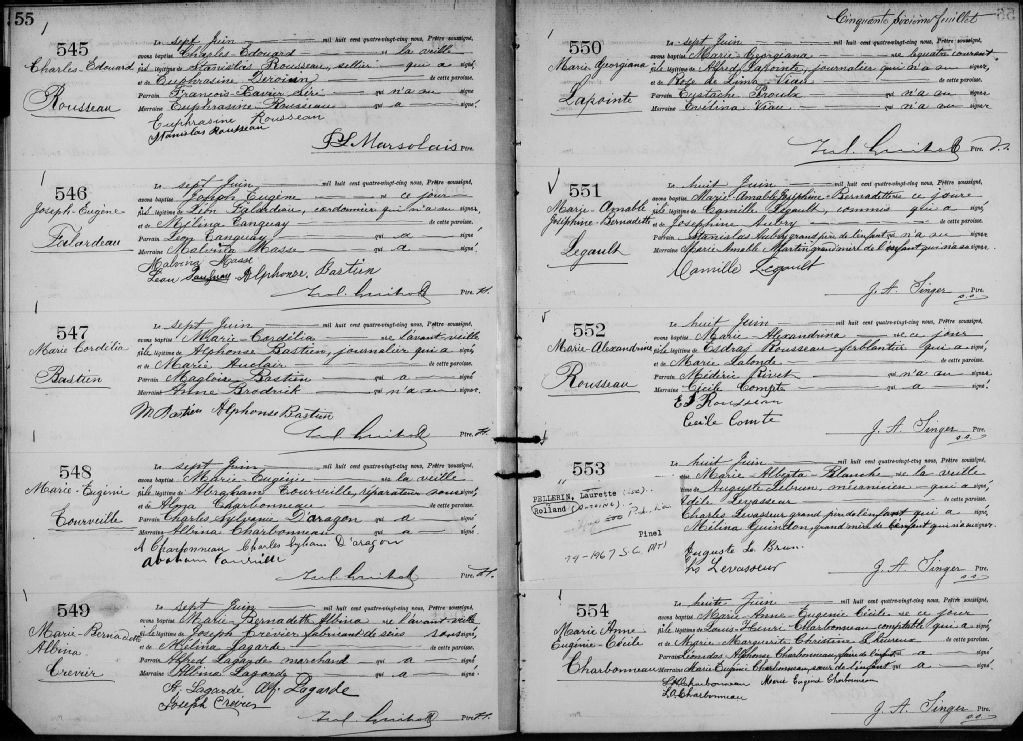 55
545
Charles-Edouard
Rousseau
Le sept Juin mil huit cent quatre-vingt-cinq nous, Prêtre soussigné,
avons baptisé Charles-Edouard né la veille
fils légitime de Stanislas Rousseau, sellier qui a signé,
et de Euphrasine Drouin de cette paroisse.
Parrain François-Xavier qui n'a su signé
Marraine Euphrasine Rousseau qui a signé.
Euphrasine Rousseau
Stanislas Rousseau
Marsolais Ptre.
546
Joseph-Eugène
Falardeau
Le sept Juin mil huit cent quatre-vingt-cinq nous, Prêtre soussigné,
avons baptisé Joseph Eugène né ce jour
fils légitime de Léon Falardeau, cordonnier qui n'a su signer,
et de Mélina Tanguay de cette paroisse.
Parrain Léon Tanguay qui a signé
Marraine Malvina Masse qui a signé.
Malvina Masse
Léon Tanguay Alphonse Bastien
Ptre.
547
Marie Cordélia
Bastien
Le sept Juin mil huit cent quatre-vingt-cinq nous, Prêtre soussigné,
avons baptisé Marie-Cordélia née l'avant-veille
fille légitime de Alphonse Bastien, journalier qui a signé,
et de Marie Auclair de cette paroisse.
Parrain Magloire Bastien qui a signé
Marraine Anne Brodrik qui n'a su signer.
M Bastien Alphonse Bastien
Ptre.
548
Marie-Eugénie
Tourville
Le sept Juin mil huit cent quatre-vingt-cinq nous, Prêtre soussigné,
avons baptisé Marie-Eugénie née la veille
fille légitime de Abraham Tourville, réparateur soussigné,
et de Alma Charbonneau de cette paroisse.
Parrain Charles Sylvane D'aragon qui a signé
Marraine Albina Charbonneau qui a signé.
A Charbonneau Charles D'aragon
Ptre.
549
Marie-Bernadette
Albina
Crevier
Le sept Juin mil huit cent quatre-vingt-cinq nous, Prêtre soussigné,
avons baptisé Marie-Bernadette Albina née l'avant-veille
fille légitime de Joseph Crevier fabricant de scies soussigné,
et de Mélina Lagarde de cette paroisse.
Parrain Alfred Lagarde marchand qui a signé
Marraine Albina Lagarde qui a signé.
A. Lagarde Alf Lagarde
Joseph Crevier
Ptre.
Cinquante sixième feuillet
550
Marie Georgiana
Lapointe
Le sept Juin mil huit cent quatre-vingt-cinq nous, Prêtre soussigné,
avons baptisé Marie-Georgiana née le quatre courant
fille légitime de Alfred Lapointe, journalier qui n'a su signer,
et de Rose de Lima Viau de cette paroisse.
Parrain Eustache Proulx qui n'a su signer
Marraine Evelina Viau qui n'a su signer
Ptre.
551
Marie-Amable
Joséphine-Bernadette
Legault
Le huit Juin mil huit cent quatre-vingt-cinq nous, Prêtre soussigné,
avons baptisé Marie-Amable Joséphine-Bernadette née ce jour
fille légitime de Camille Legault, commis qui a signé,
et de Joséphine Aubry de cette paroisse.
Parrain Stanislas Aubry grand père de l'enfant qui n'a su signer
Marraine Marie Amable Martin grand'mère de l'enfant qui n'a su signer
Camille Legault
J. A. Singer Ptre.
s.s.
552
Marie-Alexandrine
Rousseau
Le huit Juin mil huit cent quatre-vingt-cinq nous, Prêtre soussigné,
avons baptisé Marie-Alexandrina née ce jour
fille légitime de Esdras Rousseau ferblantier qui a signé,
et de Marie Lalonde de cette paroisse.
Parrain Médéric Rivet qui n'a su signer
Marraine Cécile Compte qui a signé.
Ed Rousseau
Cécile Comte
J. A. Singer Ptre.
s.s.
553
PELLERIN, Laurette
Rolland
Pinel
Le huit Juin mil huit cent quatre-vingt-cinq nous, Prêtre soussigné,
avons baptisé Marie-Alberta-Blanche née la veille
fille légitime de Auguste Lebrun, mécanicien qui a signé,
et de Odile Levasseur de cette paroisse.
Parrain Charles Levasseur grand père de l'enfant qui a signé
Marraine Mélina Guindon, grand'mère de l'enfant qui n'a su signer.
Auguste Le Brun
Chs Levasseur
J. A. Singer Ptre.
s.s.
554
Marie Anne
Eugénie-Cécile
Charbonneau
Le huit Juin mil huit cent quatre-vingt-cinq nous, Prêtre soussigné,
avons baptisé Marie-Anne-Eugénie Cécile née ce jour
fille légitime de Louis-Henri Charbonneau comptable qui a signé,
et de Marie Marguerite Christine Lheureux de cette paroisse.
Parrain Léonidas Alphonse Charbonneau, frère de l'enfant qui a signé
Marraine Marie Eugénie Charbonneau, soeur de l'enfant qui a signé.
L.H. Charbonneau Marie Eugénie Charbonneau
L.A. Charbonneau
J. A. Singer Ptre.
s.s.